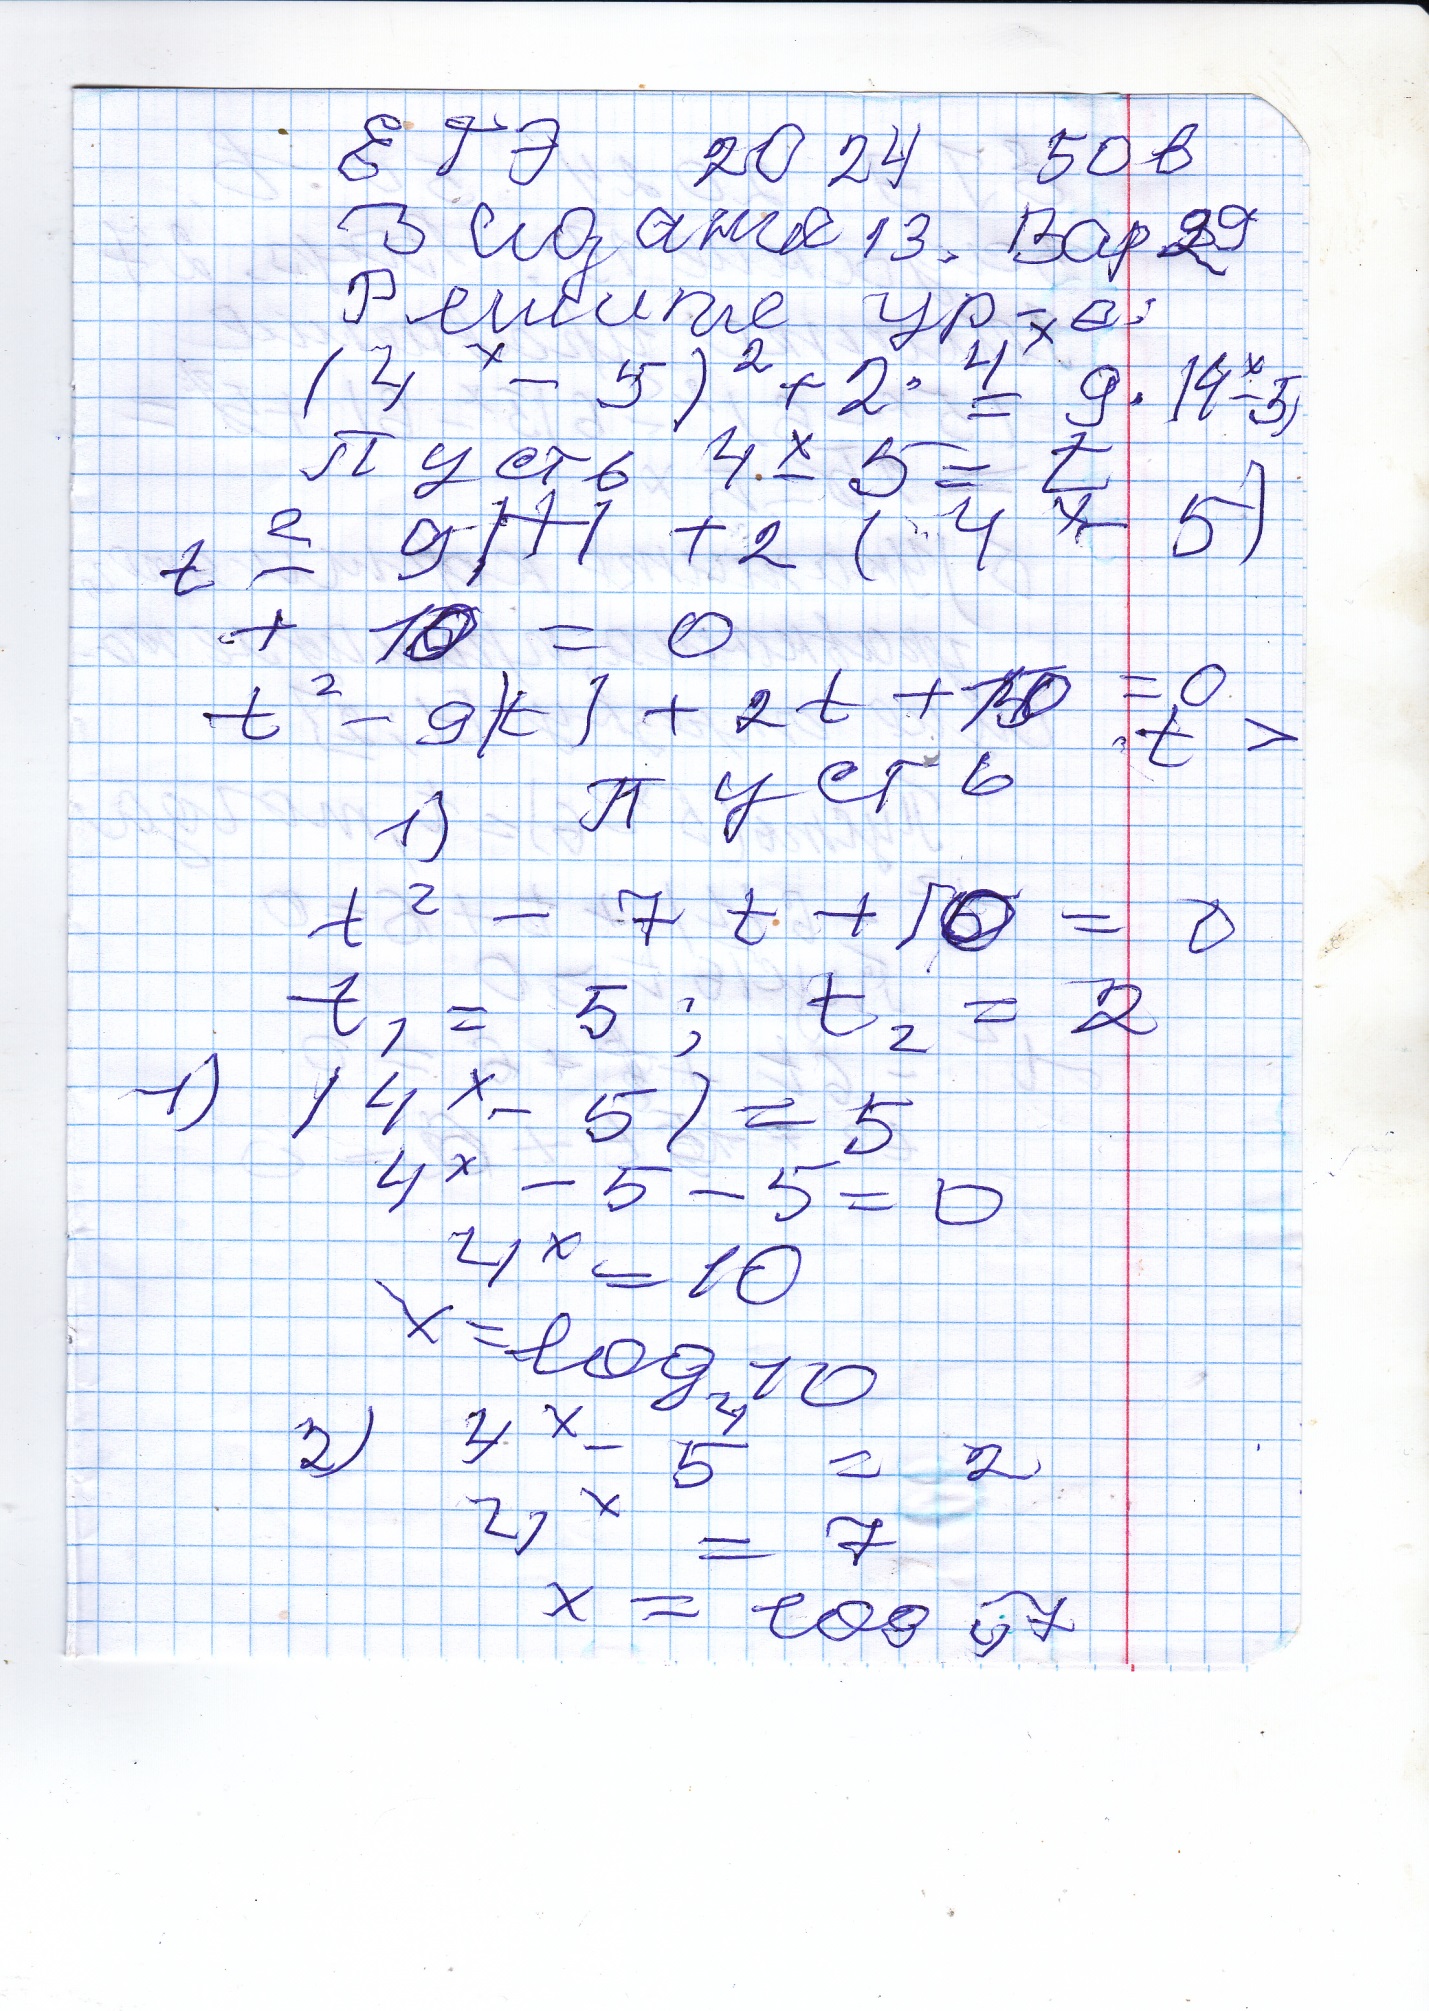 ЕГЭ 2024 50 в
Задание 13. Вар 29
Решите ур-е:
(4ˣ - 5)² + 2 · 4ˣ = 9 · |4ˣ - 5|
Пусть 4ˣ - 5 = t
t² - 9|t| + 2 (4ˣ - 5)
+ 10 = 0
t² - 9|t| + 2t + 10 = 0
1) Пусть t >
t² - 7t + 10 = 0
t₁ = 5; t₂ = 2
1) |4ˣ - 5| = 5
4ˣ - 5 - 5 = 0
4ˣ = 10
x = log₄10
2) 4ˣ - 5 = 2
4ˣ = 7
x = log₄7